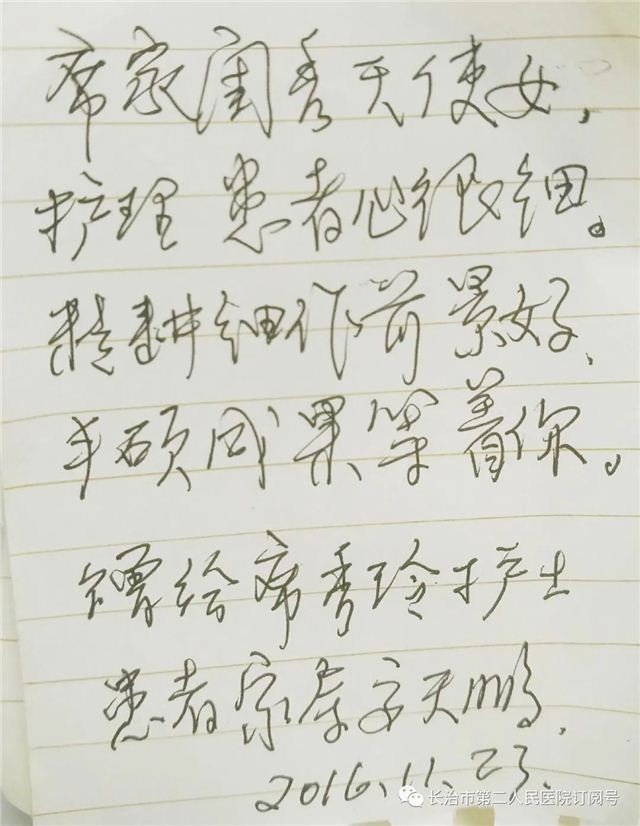 席家闺秀天使女,
护理患者心很细。
精耕细作前景好,
丰硕成果等着你。
赠给席秀玲护士
患者家属 天鹏.
2016.11.23.
长治市第二人民医院订阅号